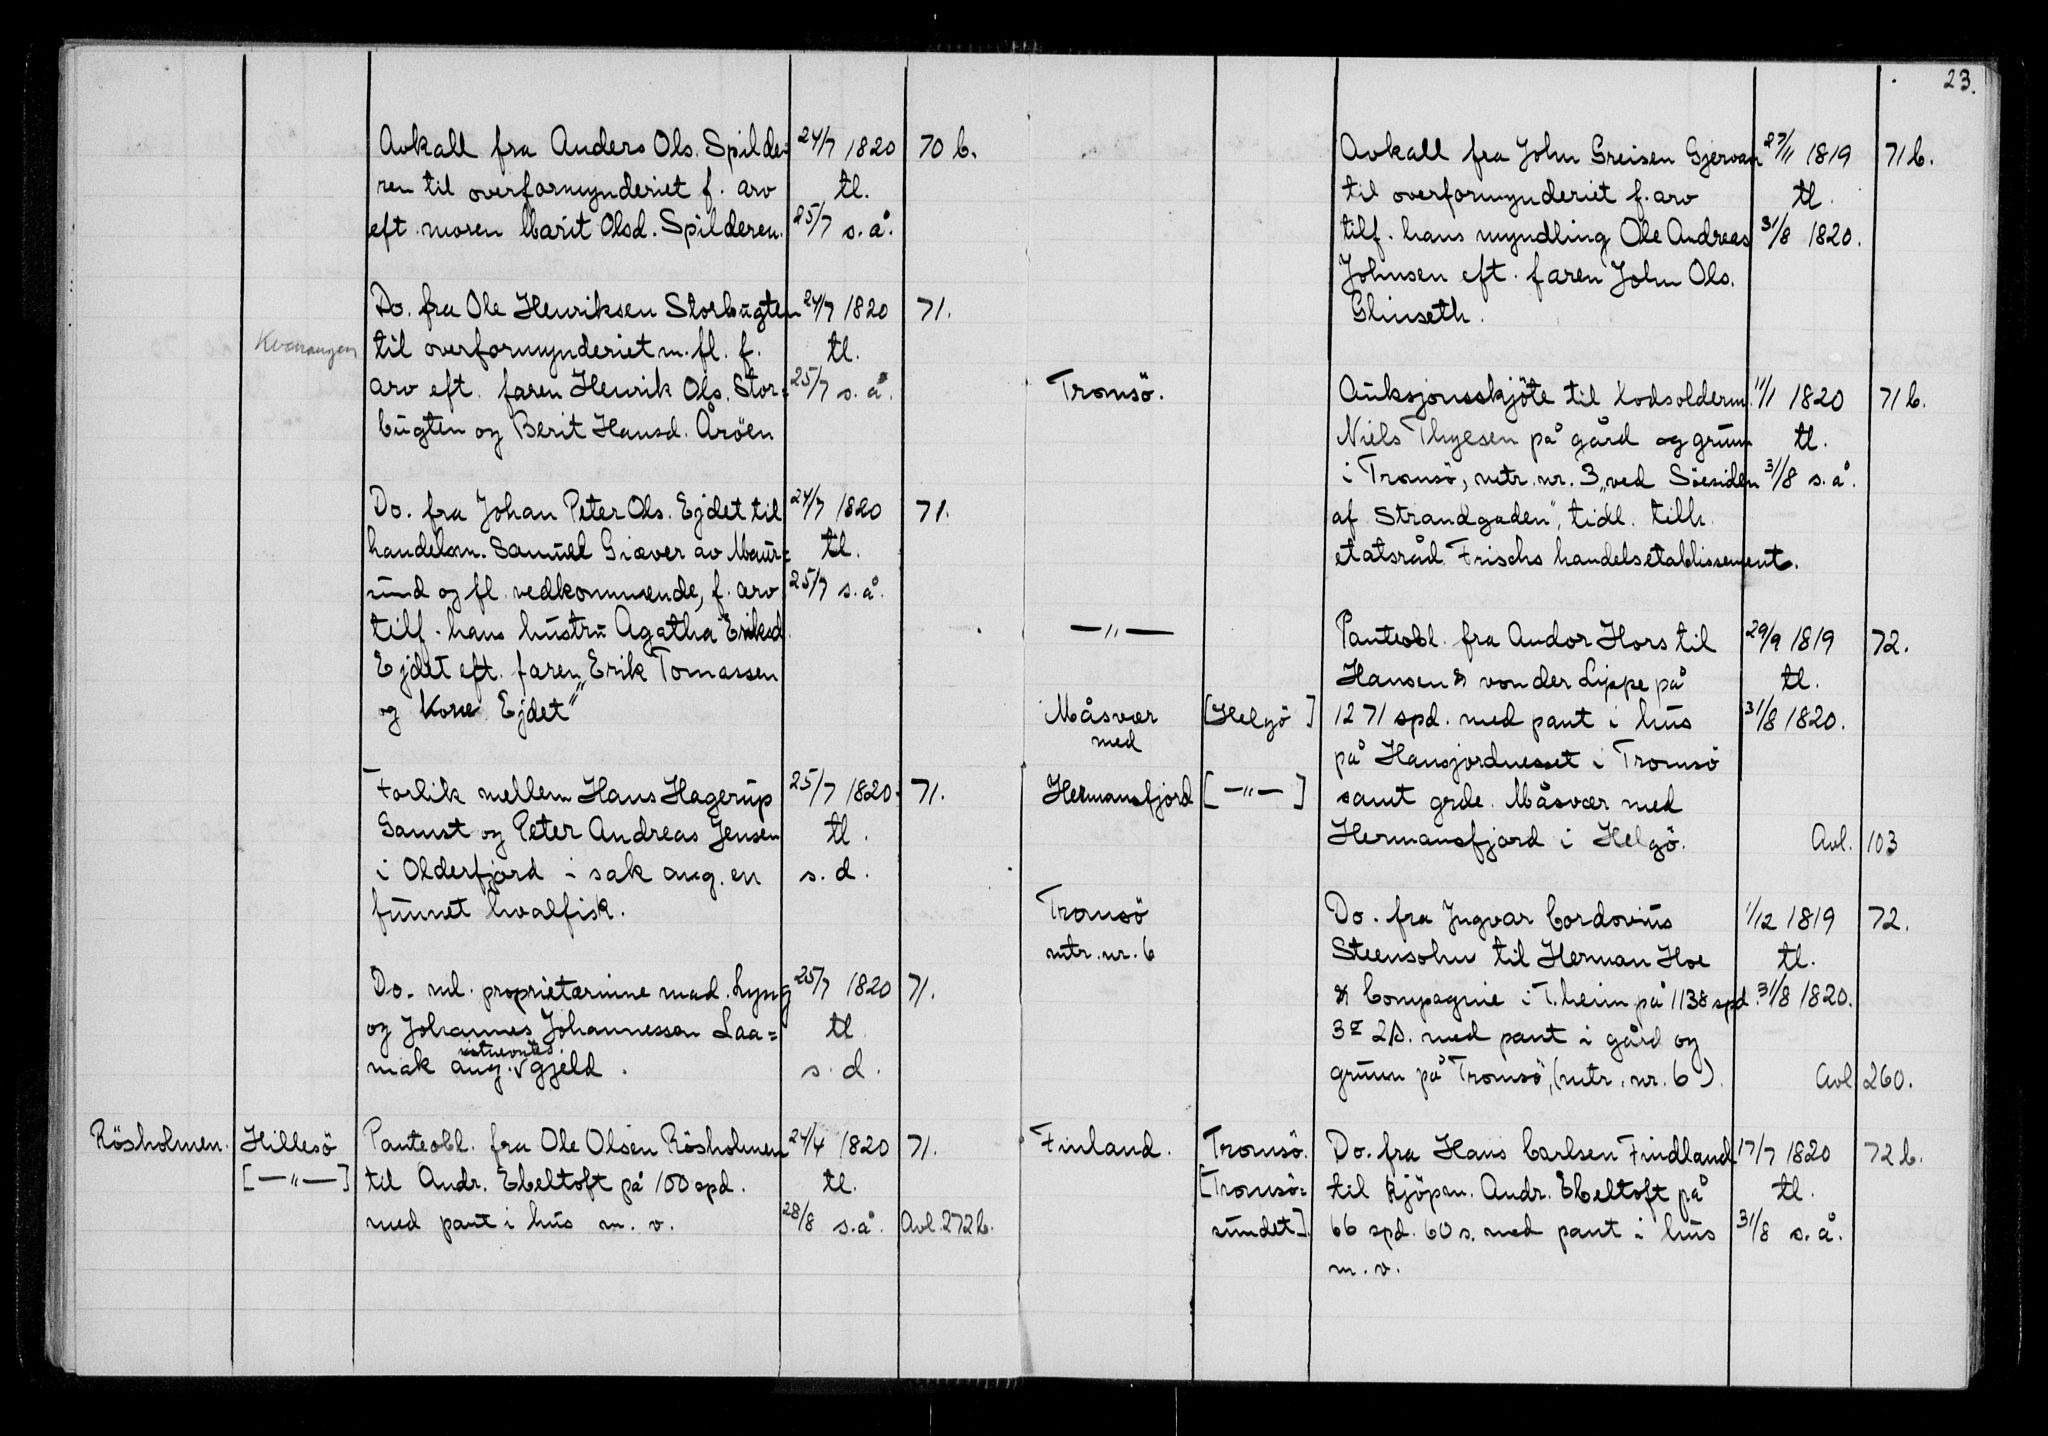 23.
Avkall fra Anders Ols. Spilde= 24/7 1820 70 b.
ren til overformynderiet f. arv tl.
eft. moren Marit Olsd. Spilderen. 25/7 s. å.
Do. fra Ole Henriksen Storbugten 24/7 1820 71.
Kvænangen til overformynderiet m. fl. f. tl.
arv eft. faren Henrik Ols. Stor= 25/7 s. å.
bugten og Berit Hansd. Årøen
Do. fra Johan Peter Ols. Ejdet til 24/7 1820 71.
handelsm. Samuel Giæver av Maur= tl.
sund og fl. vedkommende, f. arv 25/7 s. å.
tilf. hans hustru Agatha Eriksd.
Ejdet eft. faren „Erik Tomassen
og Kone Ejdet"
Forlik mellem Hans Hagerup 25/7 1820. 71.
Gamst og Peter Andreas Jensen tl.
i Olderfjord i sak ang. en s. d.
funnet hvalfisk.
Do. ml. proprietærinne mad. Lyng 25/7 1820 71.
og Johannes Johannessen Laa= tl.
mak ang. gjeld. s. d.
Rösholmen. Hillesö Panteobl. fra Ole Olsen Rösholmen 24/4 1820 71.
[—„—] til Andr. Ebeltoft på 100 spd. tl.
med pant i hus m. v. 28/8 s. å. Avl. 272 b.
Avkall fra John Greisen Gjervan 27/11 1819 71 b.
til overformynderiet f. arv tl.
tilf. hans myndling Ole Andreas 31/8 1820.
Johnsen eft. faren John Ols.
Glimseth.
Tromsö. Auksjonsskjöte til Kodsolderm. 11/1 1820 71 b.
Niels Thyesen på gård og grunn tl.
i Tromsö, mtr. nr. 3 „ved Söesiden 31/8 s. å.
af Strandgaden", tidl. tilh.
etatsråd Frischs handelsetablissement.
—„— Panteobl. fra Andor Hors til 29/9 1819 72.
Hansen & von der Lippe på tl.
Måsvær [Helgö] 1271 spd. med pant i hus 31/8 1820.
med på Hansjordnesset i Tromsö
Hermansfjord [—„—] samt grde. Måsvær med
Hermansfjord i Helgö. Avl. 103
Tromsö Do. fra Ingvar Cordovius 1/12 1819 72.
mtr. nr. 6 Steensohn til Herman Hoe tl.
& Compagnie i T.heim på 1138 spd. 31/8 1820.
3 2 s. med pant i gård og
grunn på Tromsö, (mtr. nr. 6). Avl 260.
Finland. Tromsö. Do. fra Hans Carlsen Findland 17/7 1820 72 b.
[Tromsö= til kjöpm. Andr. Ebeltoft på tl.
sundet]. 66 spd. 60 s. med pant i hus 31/8 s. å.
m. v.